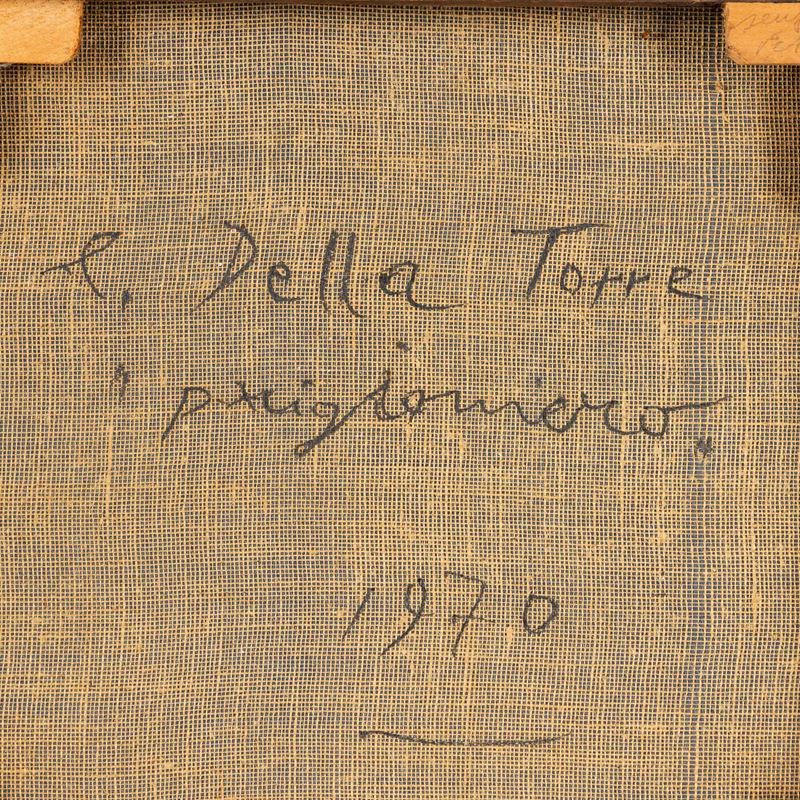 Della Torre
"prigioniero"
1970